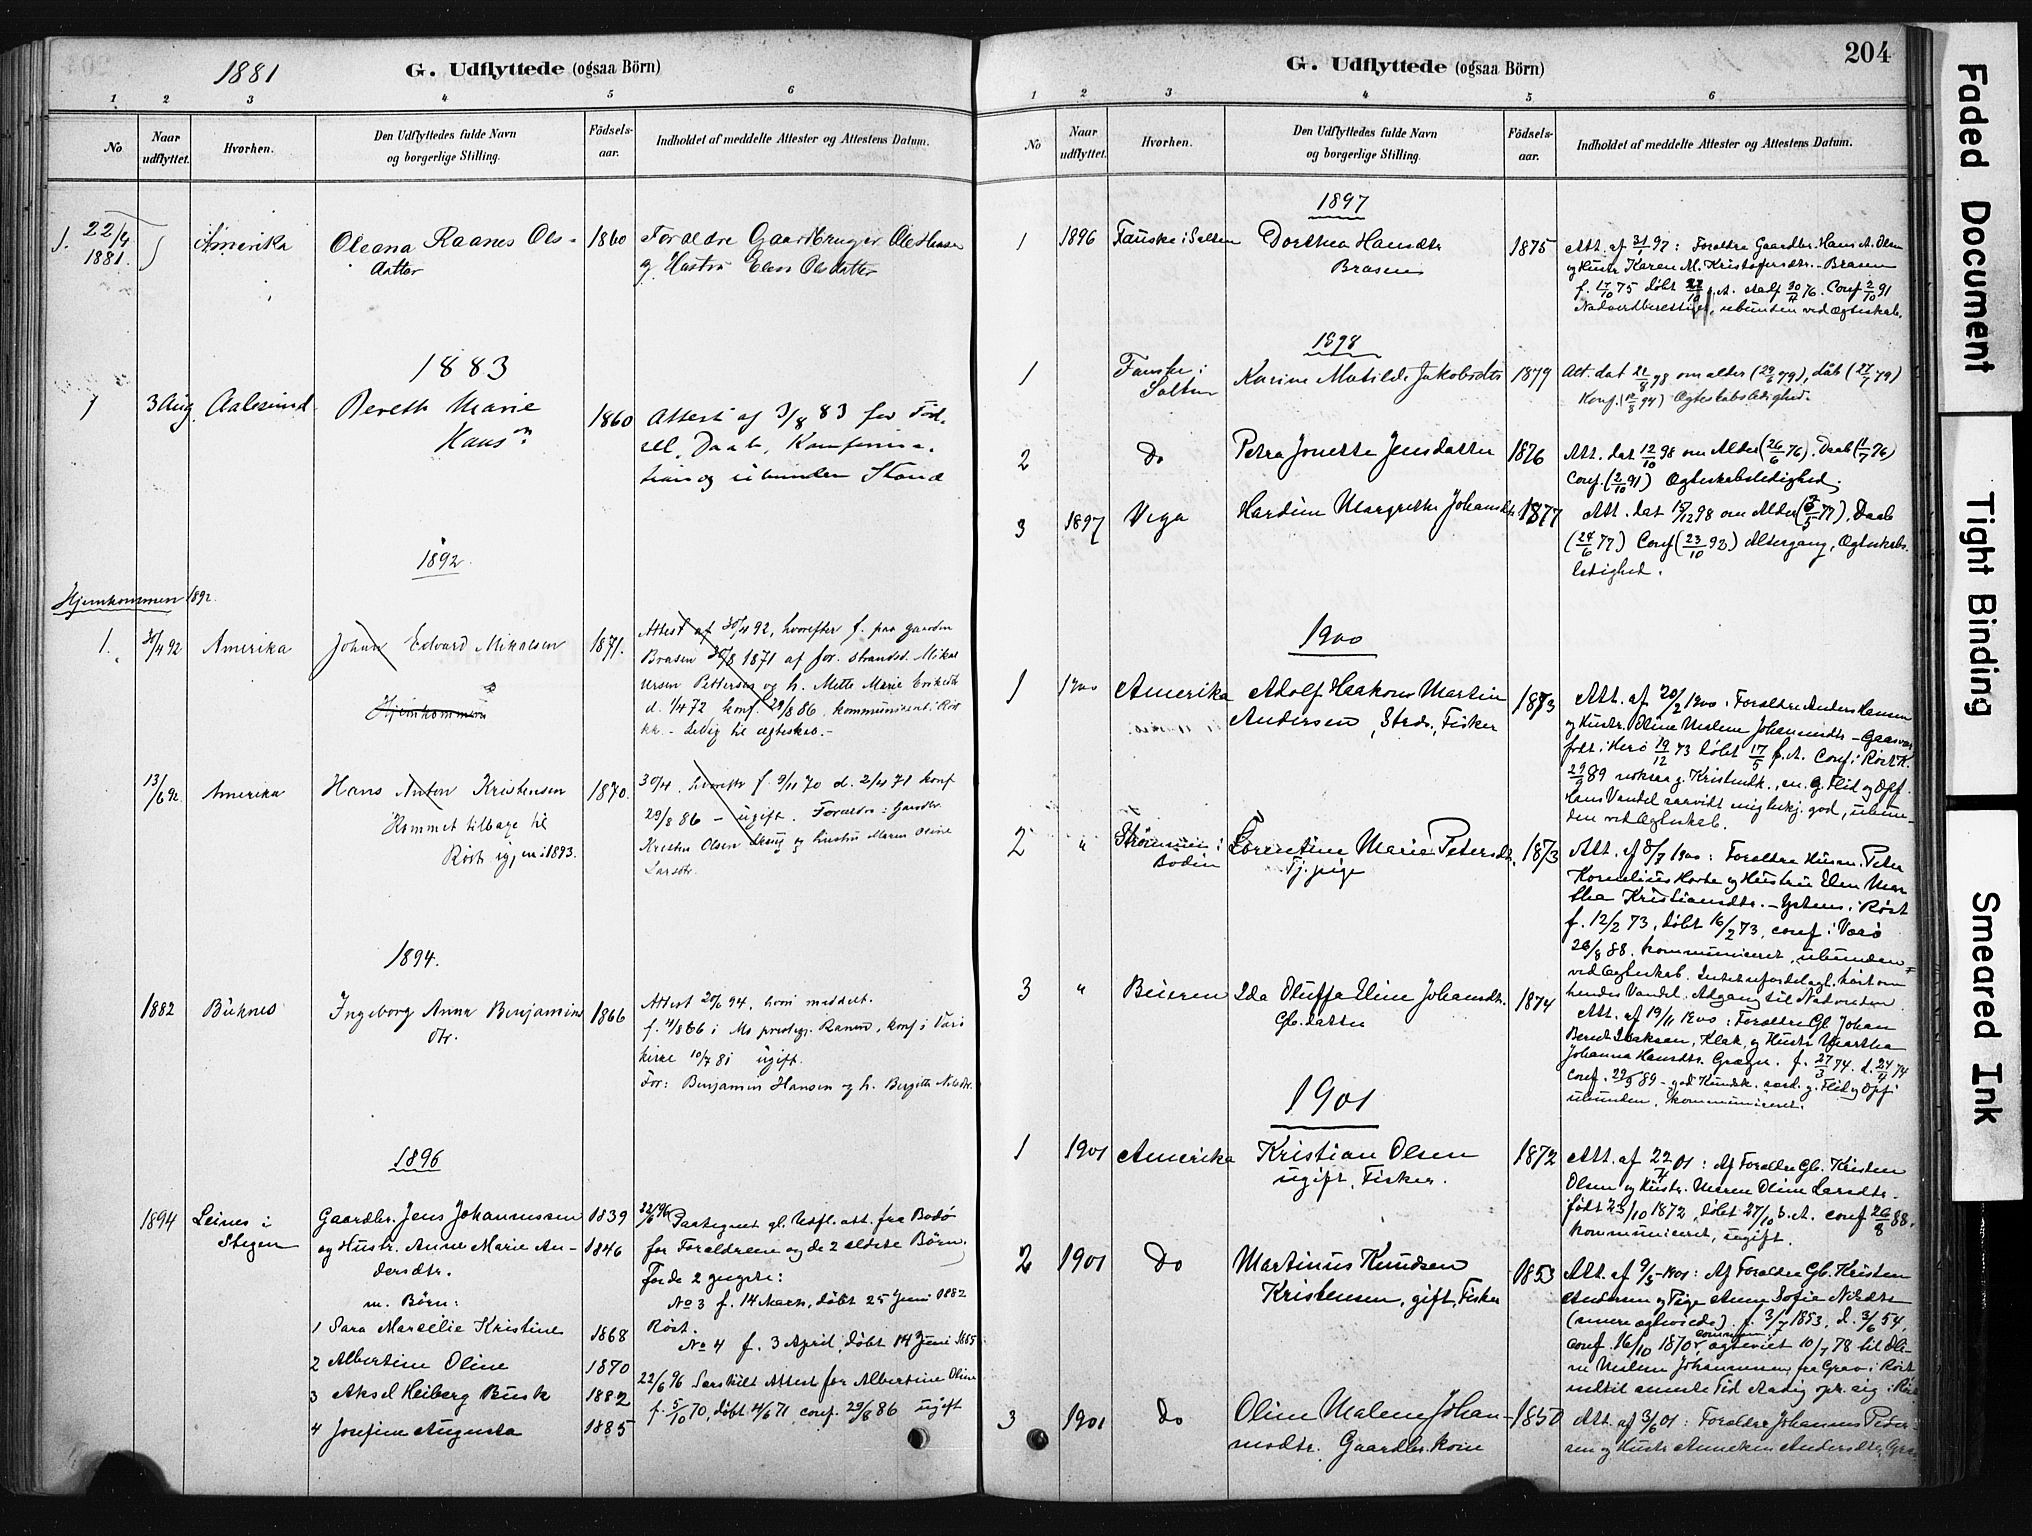 1881
G. Udflyttede (ogsaa Börn)
1 2 3 4 5 6
No
Naar udflyttet.
Hvorhen.
Den Udflyttedes fulde Navn
og borgerlige Stilling.
Födsels-
aar.
Indholdet af meddelte Attester og Attestens Datum.
1. 22/4 1881. Amerika Oleana Raanes Ols- 1860 Forældre Gaardbruger Ole Hansen
datter og Hustru Elen Olsdatter
1883
1 3 Aug. Aalesund Bereth Marie 1860 Attest af 3/8 83 for Föd-
Hansn. sel, Daab, Konfirma-
tion og ubunden Stand
1892.
Hjemkommen 1892.
1. 30/4 92 Amerika Johan Edvard Mikalsen 1871. Attest af 30/4 92, hvorefter f. paa gaarden
Brasen 30/8 1871 af for. strandsd. Mikal
Ursin Pettersen og h. Mette Marie
Hjemkommen d. 1/4 72 konf 29/8 86. kommuniceret i Röst
kk. - Ledig til ægteskab. -
13/6 92 Amerika Hans Anton Kristensen 1870. 30/4. hvorefter f. 9/11 70 d. 2/4 71 konf
Kommet tilbage til 29/8 86 - ugift. Forældre: gaardbr.
Röst igjen i 1893. Kristen Olsen og hustru Maren Oline
Larsdtr.
1894.
1882 Buknes Ingeborg Anna Benjamins 1866 Attest 20/6 94, hvori meddelt.
dtr. f. 4/8 66 i Mo præstegj. Ranen, konf i Værö
kirke 10/7 81 ugift.
For: Benjamin Hansen og h. Birgitte Nilsdtr.
1896
1894 Leines i Gaardbr. Jens Johannessen 1839 22/6 96 Paategnet gl. Udfl. att. fra Bodö
Stegen og Hustr. Anne Marie An- 1846 for Forældrene og de 2 ældste Börn.
dersdtr. For de 2 yngste:
m. Börn: No 3 f. 14 Marts, döbt 25 Juni 1882
1 Sara Marselie Kristine 1868 Röst.
No 4 f. 3 April, döbt 14 Juni 1885
2 Albertine Oline 1870 22/6 96 Særskilt Attest for Albertine Oline
3 Aksel Heiberg Busk 1882 f. 5/10 70, döbt 4/6 71, conf. 29/8 86 ugift
4 Josefine Augusta 1885
G. Udflyttede (ogsaa Börn)
204
1 2 3 4 5 6
No
Naar udflyttet.
Hvorhen.
Den Udflyttedes fulde Navn
og borgerlige Stilling.
Födsels-
aar.
Indholdet af meddelte Attester og Attestens Datum.
1897
1 1896 Fauske i Salten Dorthea Hansdtr 1875 Att. af 3/1 97: Forældre Gaardbr. Hans A. Olsen
Brasen og Hustr. Karen M. Kristofersdtr. - Brasen
f. 17/10 75 döbt s. A. Conf 2/10 91
Nadverdberettiget, ubunden ved Ægteskab.
1898
1 Fauske i Karine Matilde Jakobsdtr 1879 Att. dat 21/8 98 om alder (29/6 79), dåb (27/7 79)
Salten Konf. (12/8 94) Ægteskabsledighed.
2 Do Petra Jonette Jensdatter 1876 Att. dat 12/10 98 om Alder (26/6 76). Daab (1/7 76)
Conf. (2/10 91) Ægteskabsledighed.
3 1897 Vega Hardine Margrethe Johansdtr 1877 Att. dat 98 om Alder, Daab
(24/6 77) Conf (23/10 92) Altergang, Ægteskabs-
ledighed.
1900
1 1900 Amerika Adolf Haakon Martin 1873 Att. af 20/2 1900: Forældre Anders Hansen
Andersen, Strds., Fisker og Hustr. Oline Johannesdtr - Gaasvær
födt i Herö 19/12 73 döbt 17/5 Conf. i Röst K.
29/9 89 nokså g. Kristendk., m. g. Flid og Opf.
Hans Vandel saavidt mig bekj. god, ubun-
den ved Ægteskab.
2 " Strömmen i Lorentine Marie Petersdtr. 1873 Att. af 8/7 1900: Forældre Husm. Peter
Bodin Tj. pige Kornelius og Hustru Elen Mar
tha Kristiansdtr. - Ystnes i Röst
f. 12/2 73, döbt 16/2 73, conf. i Værö
26/8 88. kommuniceret, ubunden
ved Ægteskab. Intet ufordelagt. hört om
hendes Vandel. Adgang til Nadverden
3 " Beieren Ida Oluffa Eline Johansdtr. 1874 Att. af 19/11 1900: Forældre Gl. Johan
Gb. datter Berndt Isaksen, Klak, og Hustr Martha
Johanna Hansdtr. f. 27/3 74. d. 24/4 74
Conf. 29/9 89 - god Kundsk. g. Flid og Opf.
ubunden, kommuniceret.
1901
1 1901 Amerika Kristian Olsen 1872 Att. af 22/4 01: Af Forældre Gb. Kristen
ugift, Fisker. Olsen og Hustr. Maren Oline Larsdtr.
Födt 23/10 1872, döbt 27/10 s. A. conf 26/8 88.
kommuniceret, ugift.
2 1901 Do Martinus Knudsen 1853 Att. af 9/5 1901: Af Forældre Gb. Kristen
Kristensen, gift, Fisker Andersen og Pige Anne Sofie Nilsdtr
(senere ægteviede) f. 3/7 1853, d. 3/6 54
conf. 16/10 1870, commun., ægteviet 10/7 78 til Oli-
ne Malene Johannesen fra Grav i Röst
indtil anmeldte Tid stadig oph. sig i Röst
3 1901 Do Oline Malene Johan- 1850 Att. af 3/6 01: Forældre Johannes Peder-
nesdtr. Gaardbr. kone sen og Hustr Anneken Andersdtr,
Faded Document
Tight Binding
Smeared Ink